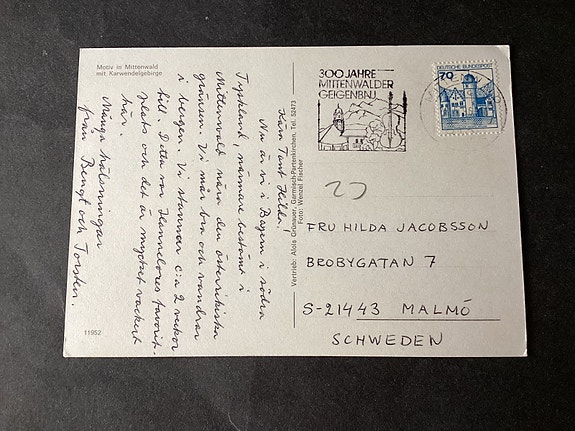 Motiv in Mittenwald
mit Karwendelgebirge
Kära Tant Hilda!
Nu är vi i Bayern i södra
Tyskland, närmare bestämt i
Mittenwald nära den österrikiska
gränsen. Vi mår bra och vandrar
i bergen. Vi stannar c:a 2 veckor
till. Detta var Hannelores favorit-
plats och det är mycket vackert
här.
Många hälsningar
från Bengt och Torsten.
11952
Vertrieb: Alois Grünauer, Garmisch-Partenkirchen, Tel. 52473
Foto: Wenzel Fischer
300 JAHRE
MITTENWALDER
GEIGENBAU
DEUTSCHE BUNDESPOST
70
FRU HILDA JACOBSSON
BROBYGATAN 7
S-21443 MALMÖ
SCHWEDEN